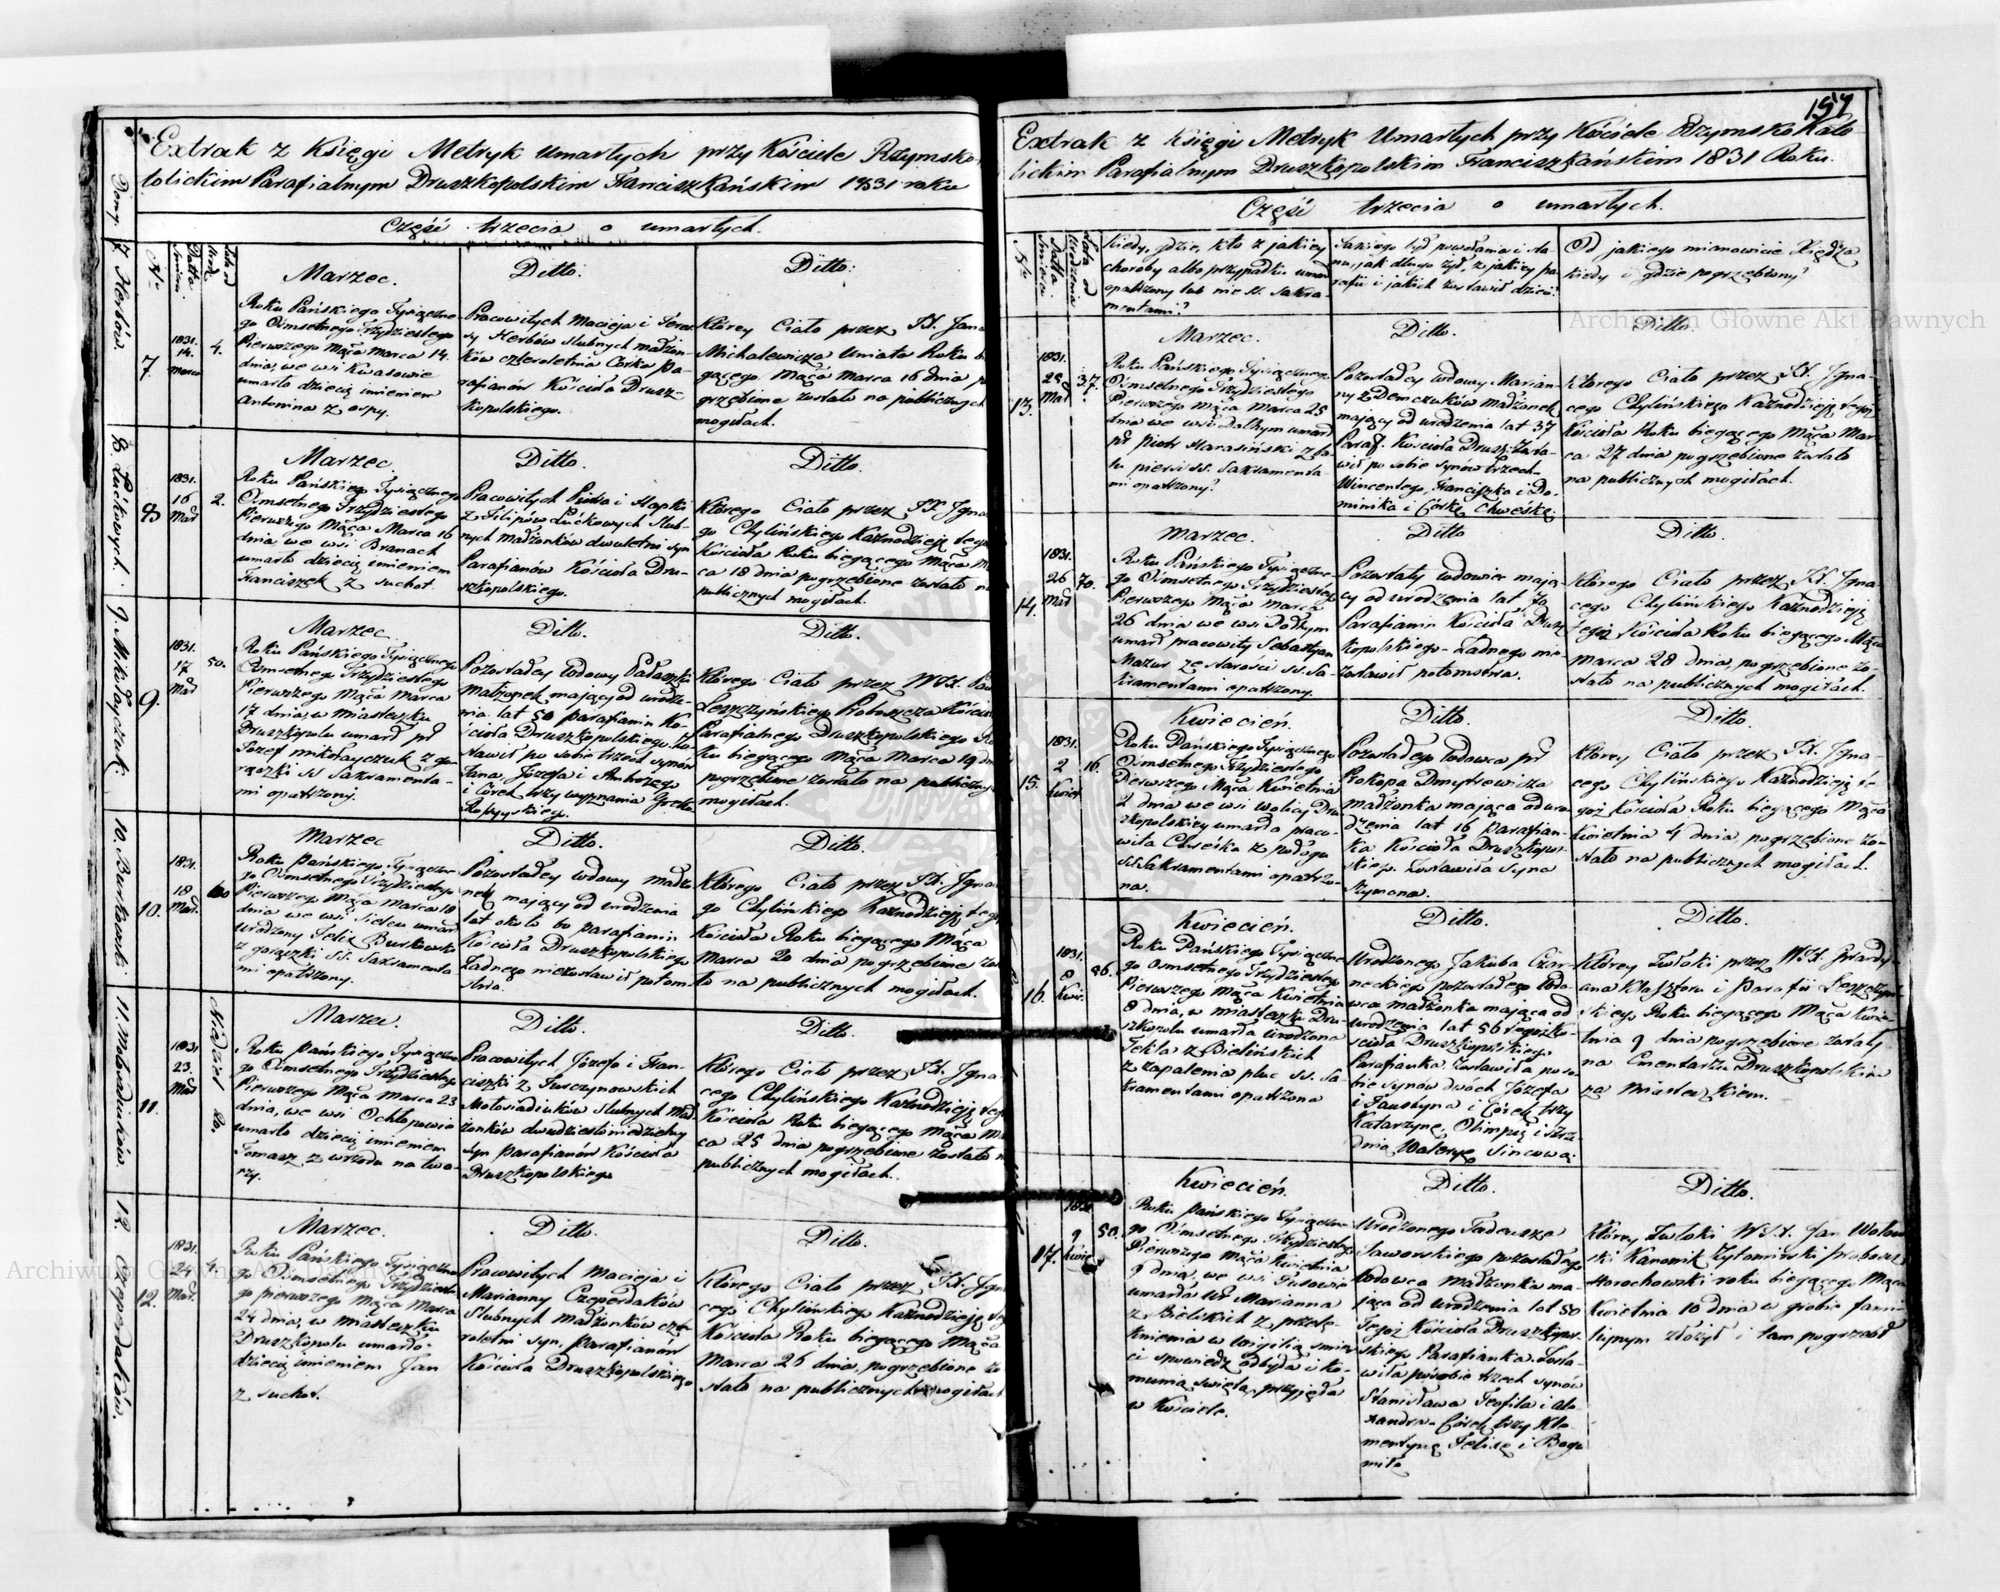 Extrak z Księgi Metryk Umarłych przy Kościele Rzymsko-
tolickim Parafialnym Druszkopolskim Franciszkańskim 1831 roku
Część trzecia o umarłych.
Marzec.
Ditto.
Ditto.
7.
1831.
14.
Marca
4.
Roku Pańskiego Tysiączne-
go Ośmsetnego Trzydziestego
Pierwszego Mąca Marca 14.
dnia, we wsi Kwasowie
umarło dziecię imieniem
Antonina z ospy.
Pracowitych Macieja i Tere-
sy Herbów ślubnych małżon-
ków czteroletnia Córka pa-
rafianów Kościoła Drusz-
kopolskiego.
Którey Ciało przez JX. Jana
Michalewicza Umiato Roku b
gącego Mąca Marca 16 dnia p
grzebione zostało na publicznych
mogiłach.
7. Herbów.
Marzec.
Ditto.
Ditto.
8
1831.
16
Mar
2.
Roku Pańskiego Tysiącznego
Ośmsetnego Trzydziestego
Pierwszego Mąca Marca 16
dnia we wsi Branach
umarło dziecię imieniem
Franciszek z suchot.
Pracowitych Piotra i Hapki
z Filipów Łućkowych Slub-
nych Małżonków dwuletni syn
Parafianów Kościoła Dru-
szkopolskiego.
Którego Ciało przez JX. Igna
go Chylińskiego Kaznodzieję tego
Kościoła Roku biegącego Mąca M
ca 18 dnia pogrzebione zostało n
publicznych mogiłach.
8. Łućkowych.
Marzec.
Ditto.
Ditto.
9.
1831.
17
Mar
50.
Roku Pańskiego Tysiącznego
Ośmsetnego Trzydziestego
Pierwszego Mąca Marca
17 dnia, w Miasteczku
Druszkopolu umarł pr
Józef Mikołayczuk z go-
rączki SS Sakramenta-
mi opatrzony.
Pozostałey wdowy
małżonek mający od urodze-
nia lat 50 parafianin Ko-
ścioła Druszkopolskiego. Zo-
stawił po sobie trzech synów
Jana, Józefa i Ambrozego
i Córek trzy wyznania Greko
Rossyyskiego.
Którego Ciało przez WJX. Paw
Leszczyńskiego Proboszcza Kościo
Parafialnego Druszkopolskiego Ro
ku biegącego Mąca Marca 19 dn
pogrzebione zostało na publiczny
mogiłach.
9. Mikołayczuk.
Marzec
Ditto.
Ditto.
10.
1831.
18
Mar.
60
Roku Pańskiego Tysiączne-
go Ośmsetnego Trzydziestego
Pierwszego Mąca Marca 18
dnia we wsi Sielcu umarł
Urodzony Felix Burkowski
z gorączki SS. Sakramenta-
mi opatrzony.
Pozostałey wdowy małżo-
nek mający od urodzenia
lat około 60 parafianin
Kościoła Druszkopolskiego
Żadnego niezostawił potom-
stwa.
Którego Ciało przez JX. Igna
go Chylińskiego Kaznodzieję tego
Kościoła Roku biegącego Mąca
Marca 20 dnia pogrzebione zos
to na publicznych mogiłach.
10. Burkowski
Marzec.
Ditto.
Ditto.
11.
1831
23.
Mar
Niedziel 20.
Roku Pańskiego Tysiączne-
go Ośmsetnego Trzydziestego
Pierwszego Mąca Marca 23
dnia, we wsi Ochłopowie
umarło dziecię imieniem
Tomasz z wrzodu na twa-
rzy.
Pracowitych Józefa i Fran-
ciszki z
ślubnych Mał-
żonków dwudziestoniedzielny
Syn parafianów Kościoła
Druszkopolskiego
Którego Ciało przez JX. Igna
cego Chylińskiego Kaznodzieję teg
Kościoła Roku biegącego Mąca M
ca 25 dnia pogrzebione zostało n
publicznych mogiłach.
Marzec.
Ditto.
Ditto.
12.
1831.
24
Mar.
4.
Roku Pańskiego Tysiączne-
go Ośmsetnego Trzydzieste-
go pierwszego Mąca Marca
24 dnia, w miasteczku
Druszkopolu umarło
dziecię imieniem Jan
z suchot.
Pracowitych Macieja i
Marianny Czeperdaków
Slubnych małżonków czte-
roletni syn, parafianów
Kościoła Druszkopolskiego
Którego Ciało przez JX. Igna
cego Chylińskiego Kaznodzieję te
Kościoła Roku biegącego Mąca
Marca 26 dnia, pogrzebione zo
stało na publicznych mogiłach
12. Czeperdaków.
157
Extrak z Księgi Metryk Umarłych przy Kościele Rzymsko Kato
lickim Parafialnym Druszkopolskim Franciszkańskim 1831 Roku.
Część trzecia o umarłych.
Nro
Datta Śmierci.
Lata od Urodzenia
Kiedy, gdzie, kto z jakiey
choroby albo przypadku umarł
opatrzony lub nie SS. Sakra-
mentami?
Jakiego był powołania i sta-
nu, jak długo żył, z jakiey pa-
rafii i jakich zostawił dzieci?
Od jakiego mianowicie Xiędza
kiedy i gdzie pogrzebiony?
Marzec.
Ditto.
Ditto.
13.
1831.
25
Mar
37.
Roku Pańskiego Tysiącznego
Ośmsetnego Trzydziestego
Pierwszego Mąca Marca 25
dnia we wsi umarł
pr Piotr Harasiński z bo-
lu piersi SS. Sakramenta-
mi opatrzony?
Pozostałey wdowy Marian-
ny z Demczuków Małżonek
mający od urodzenia lat 37
Paraf. Kościoła Drusz. Zosta-
wił po sobie synów trzech
Wincentego, Franciszka i Do-
minika i Córkę Chwéskę.
Którego Ciało przez JX. Igna-
cego Chylińskiego Kaznodzieję tegoż
Kościoła Roku biegącego Mąca Mar-
ca 27 dnia pogrzebione zostało
na publicznych mogiłach.
Marzec.
Ditto
Ditto.
14.
1831.
26
Mar
70.
Roku Pańskiego Tysiączne-
go Ośmsetnego Trzydziestego
Pierwszego Mąca Marca
26 dnia we wsi
umarł pracowity Sebastyan
Mazur ze starości SS. Sa-
kramentami opatrzony.
Pozostały wdowiec mają-
cy od urodzenia lat 70
Parafianin Kościoła Drusz
kopolskiego. Żadnego nie
zostawił potomstwa.
Którego Ciało przez JX. Igna
cego Chylińskiego Kaznodzieję
Tegoż Kościoła Roku biegącego Mąca
Marca 28 dnia, pogrzebione zo-
stało na publicznych mogiłach.
Kwiecień.
Ditto.
Ditto.
15.
1831.
2
Kwiet
16.
Roku Pańskiego Tysiącznego
Ośmsetnego Trzydziestego
Pierwszego Mąca Kwietnia
2 dnia we wsi Wolicy Dru
szkopolskiey umarła praco-
wita Chwéska z połogu
SS Sakramentami opatrzo-
na.
Pozostałego wdowca pr
Prokopa Dmytrewicza
małżonka mająca od uro-
dzenia lat 16 parafian-
ka Kościoła Druszkopol-
skiego. Zostawiła Syna
Szymona.
Którey Ciało przez JX. Igna-
cego Chylińskiego Kaznodzieję te-
goż Kościoła Roku biegącego Mąca
Kwietnia 4 dnia, pogrzebione zo-
stało na publicznych mogiłach.
Kwiecień.
Ditto.
Ditto.
16.
1831.
8
Kwie.
56.
Roku Pańskiego Tysiączne-
go Ośmsetnego Trzydziestego
Pierwszego Mąca Kwietnia
8 dnia, w miasteczku Dru-
szkopolu umarła Urodzona
Tekla z Bielińskich
z zapalenia płuc SS. Sa-
kramentami opatrzona
Urodzonego Jakuba Czar-
neckiego pozostałego Wdo-
wca małżonka mająca od
urodzenia lat 56 tegoż Ko-
ścioła Druszkopolskiego
Parafianka. Zostawiła po so-
bie synów dwóch Józefa
i Faustyna i Córek trzy
Katarzynę, Olimpię i
Waleryę
Którey Zwłoki przez WJX. Gwardy-
ana Klasztoru i Parafii Leszczyń-
skiego Roku biegącego Mąca Kwie
tnia 9 dnia pogrzebione zostały
na Cmentarzu Druszkopolskim
za Miastem
Kwiecień.
Ditto.
Ditto.
17.
1831
9
Kwie.
50.
Roku Pańskiego Tysiączne-
go Ośmsetnego Trzydziestego
Pierwszego Mąca Kwietnia
9 dnia, we wsi
umarła Wa Marianna
z Bielskich z przelę-
knienia w wigilią śmier-
ci spowiedź odbyła i ko-
munią świętą przyjęła
w Kościele.
Urodzonego Tadeusza
Jaworskiego pozostałego
Wdowca Małżonka ma-
jąca od urodzenia lat 50
Tegoż Kościoła Druszkopol-
skiego Parafianka. Zosta-
wiła po sobie trzech synów
Stanisława Teofila i Ale-
xandra. Córek trzy Kle-
mentynę Felixę i Bogu
miłę
Którey Zwłoki WJX. Jan Wołow
ski Kanonik Żytomirski proboszcz
Horochowski roku biegącego Mąca
Kwietnia 10 dnia w grobie fami-
lijnym złożył i tam pogrzebł
Archiwum Główne Akt Dawnych
Archiwum Główne Akt Dawnych